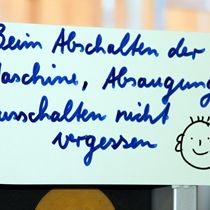 Beim Abschalten der
Maschine, Absaugung
ausschalten nicht
vergessen